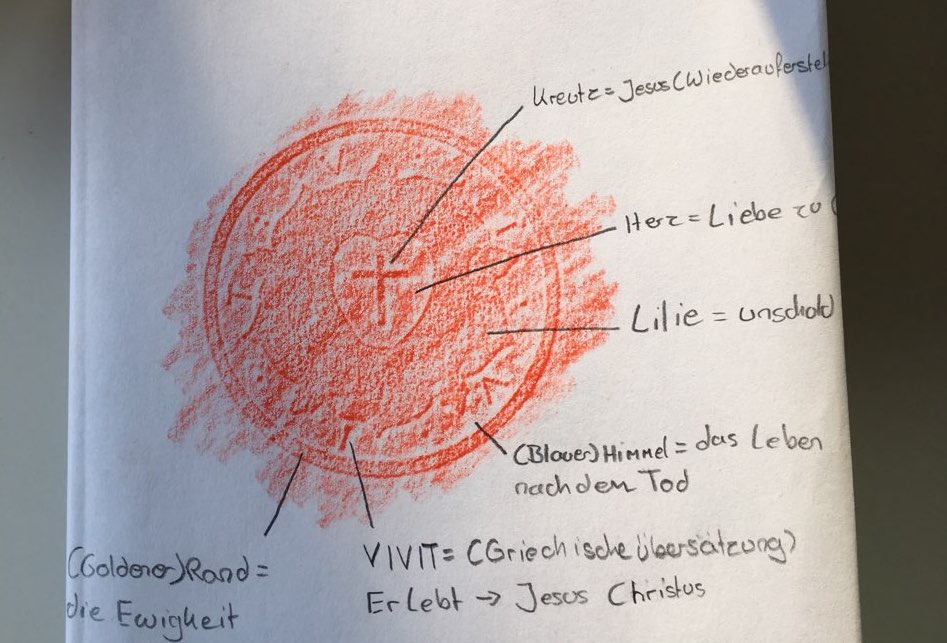 Kreutz = Jesus (Wiederauferste
Herz = Liebe zu
Lilie = unschuld
(Blauer) Himmel = das Leben
nach dem Tod
(Goldener) Rand =
die Ewigkeit
VIVIT = (Griechische übersätzung)
Er Lebt → Jesus Christus
V I V I T